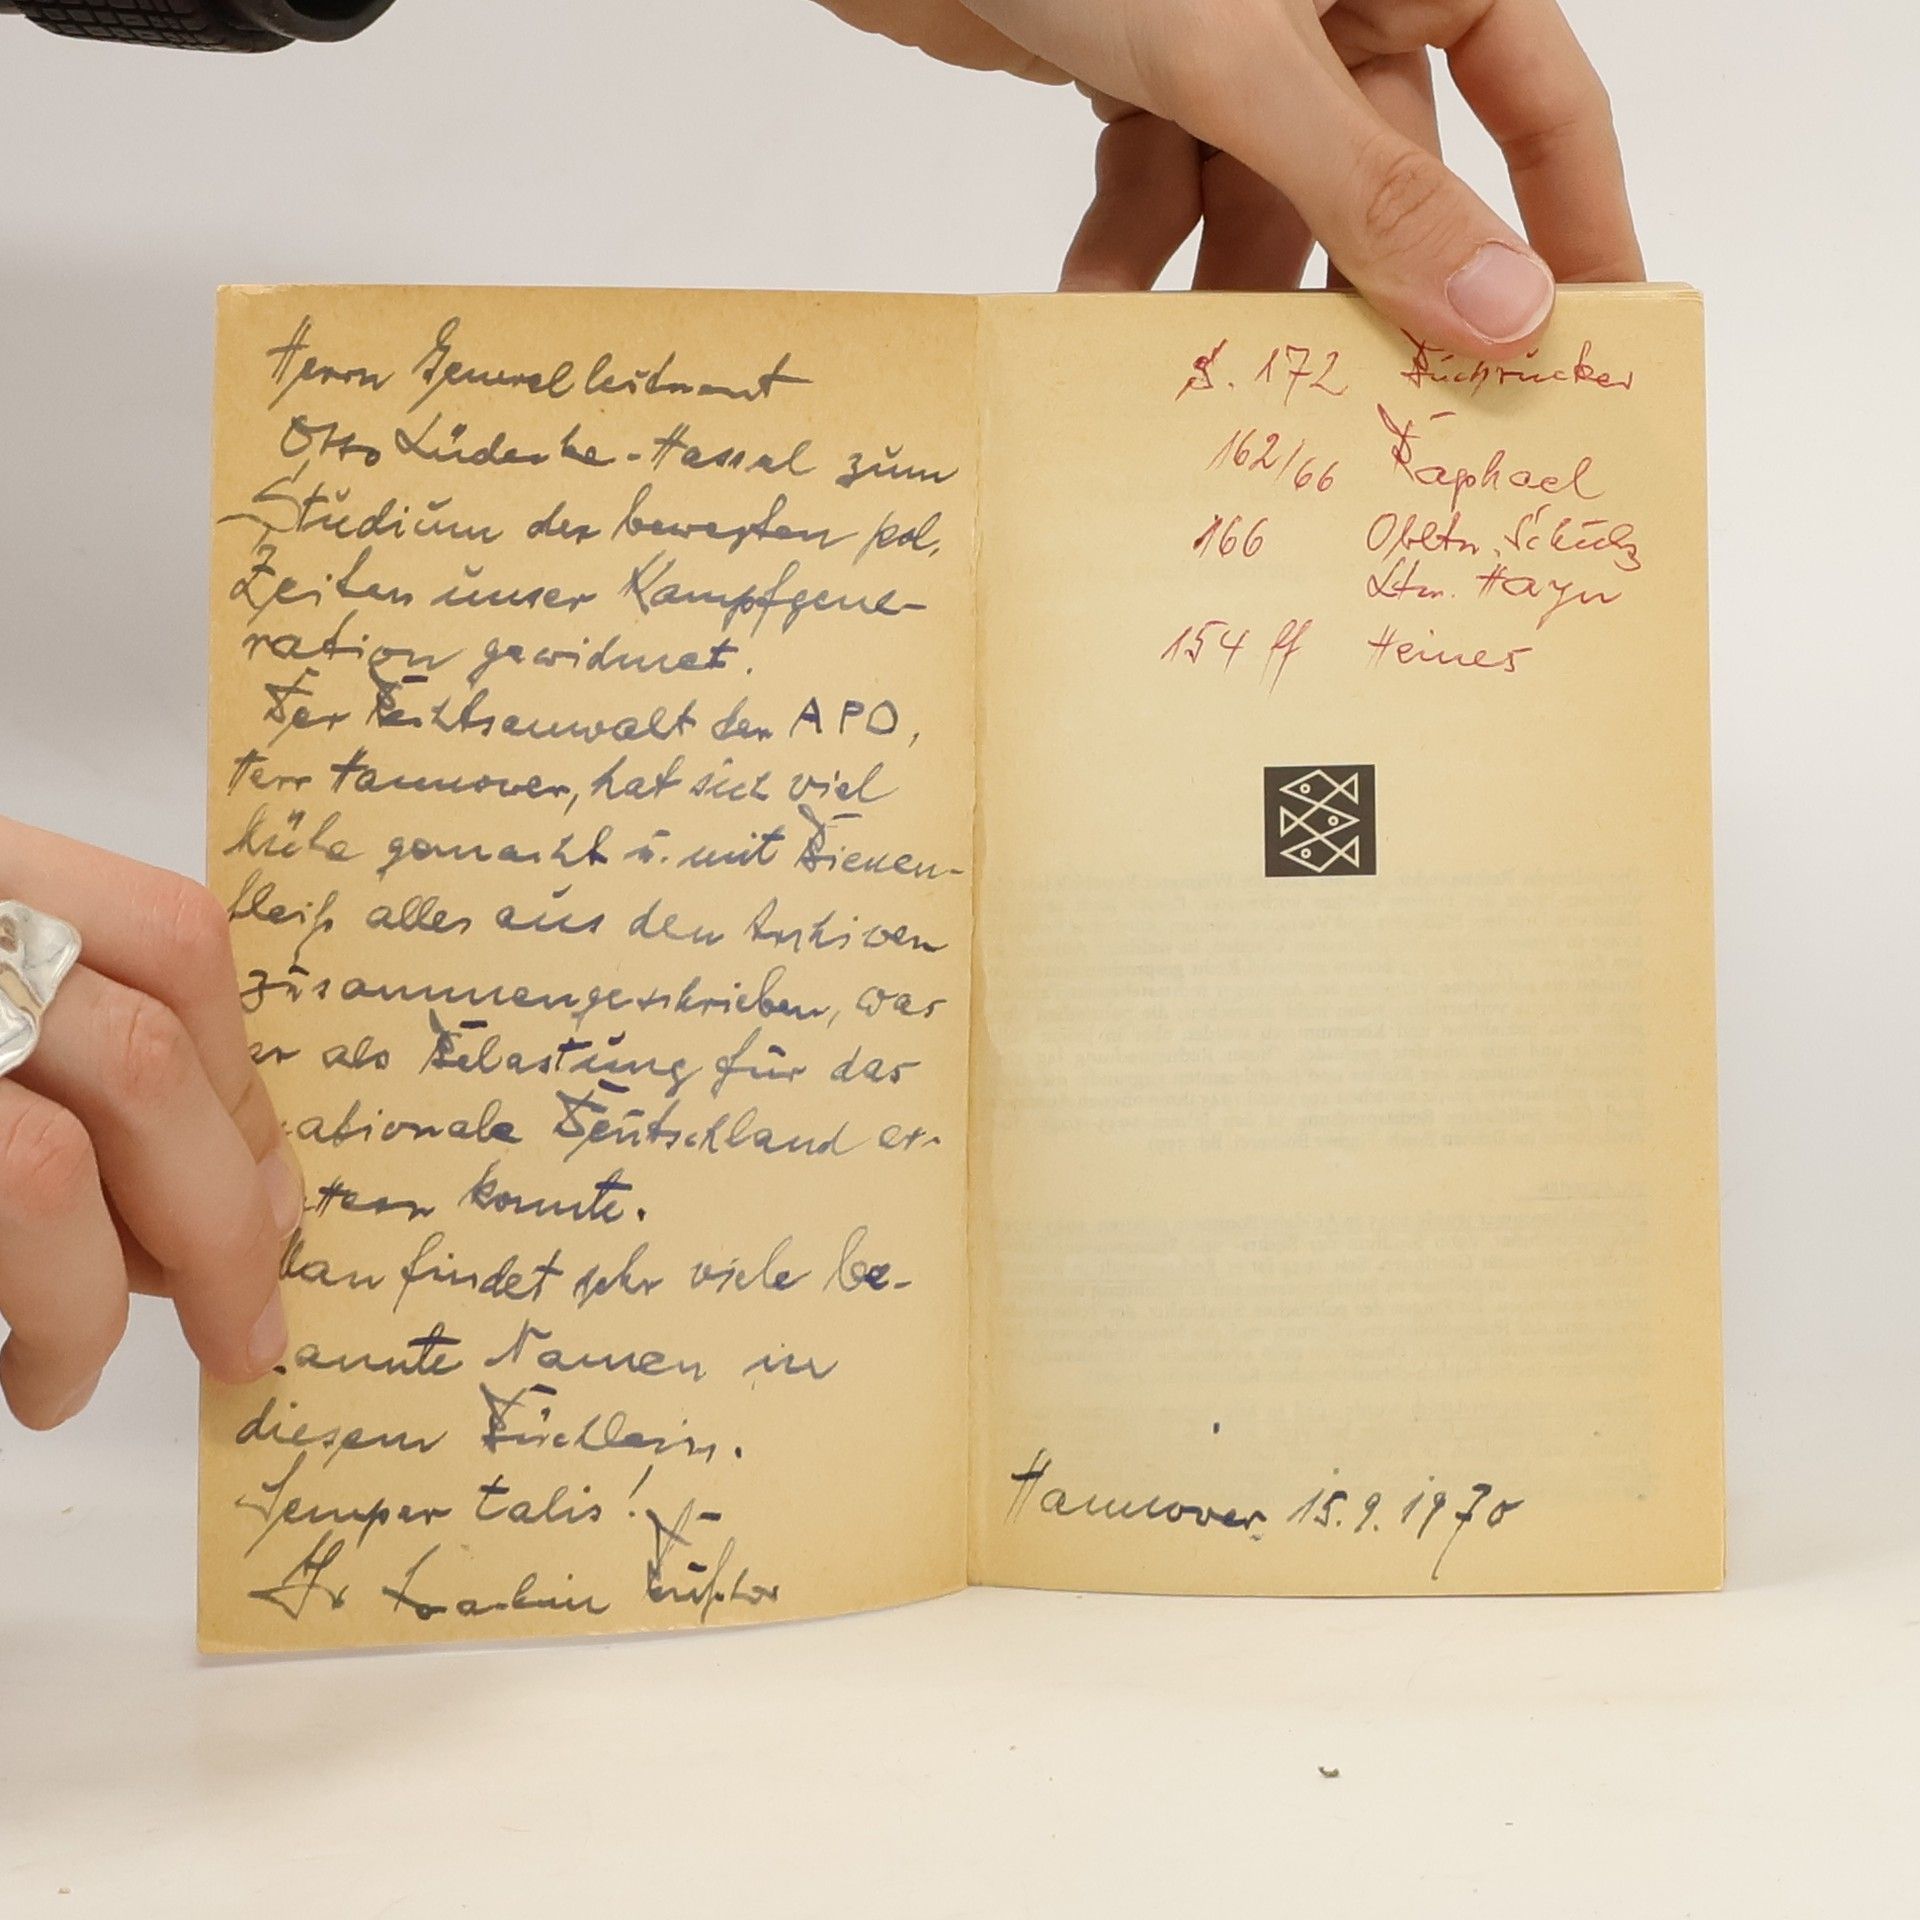 Herrn Generalleutnant
Otto Lüdecke-Hassel zum
Studium der bewegten pol.
Zeiten unser Kampfgene-
ration gewidmet.
Der Rechtsanwalt der APO,
Herr Hannover, hat sich viel
Mühe gemacht u. mit Bienen-
fleiß alles aus den Archiven
zusammengeschrieben, was
er als Belastung für das
nationale Deutschland er-
konnte.
Man findet sehr viele be-
kannte Namen in
diesem Büchlein.
Semper talis!
Dr
S. 172 Buchrucker
162/66 Raphael
166 Obltn. Schulz
Ltn. Hayn
154 ff Heines
Hannover 15.9.1970